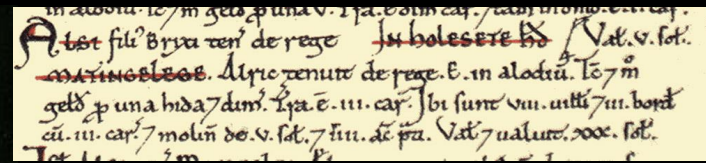 in alodiu. Tc̄ 7 m̊ geld̄ ꝑ una v. Tra. ē
Alsi fili' Brixi ten' de rege In holesete hd̄ Val. v. sol.
matingelege. Alric tenuit de rege. E. in alodiū. Tc̄ 7 m̊
geld̄ ꝑ una hida 7 dim'. Tra. ē. iii. car̄. Ibi sunt viii. uilli 7 iii. bord̄
cū. iii. car̄. 7 molin̄ de. v. sol. 7 iiii. ac̄ p̄ti. Val 7 ualuit. xxx. sol.